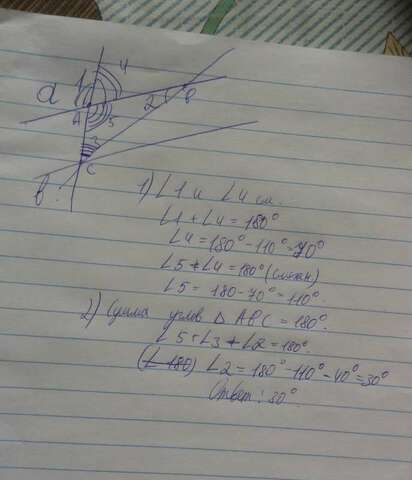 4
a 1
2 B
A 5
3
C
b
1) ∠1 и ∠4 см.
∠1 + ∠4 = 180°
∠4 = 180° - 110° = 70°
∠5 + ∠4 = 180° (смежн)
∠5 = 180 - 70° = 110°.
2) Сумма углов △ ABC = 180°.
∠5 + ∠3 + ∠2 = 180°.
(∠ 180) ∠2 = 180° - 110° - 40° = 30°
Ответ: 30°.